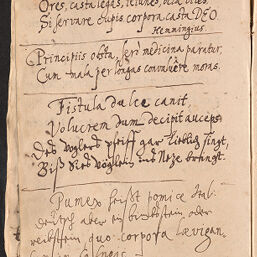 Ores, casta legas, ieiunes, otia vites,
Si servare cupis corpora casta DEO.
Henningius.
Principiis obsta, sero medicina paratur,
Cum mala per longas convaluere moras.
Fistula dulce canit,
Volucrem dum decipit auceps.
Des voglers pfeiff gar lieblich singt,
Biß Er das Vöglein ins Netze bringt.
Pumex heißt pomice Ital:
deutsch aber ein bimbstein oder
reibstein quo corpora lævigan